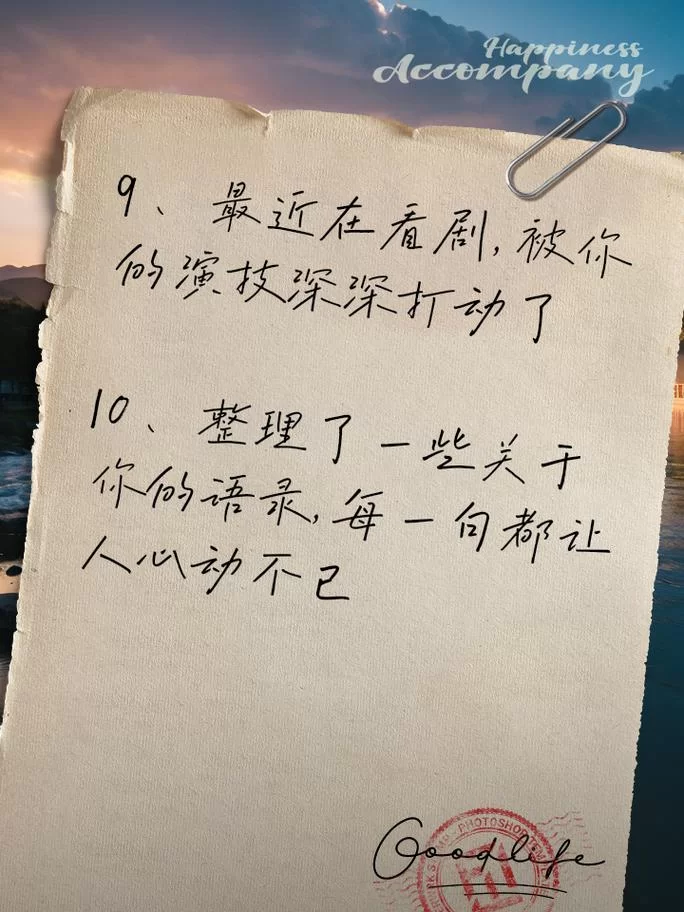 Happiness
Accompany
9、最近在看剧,被你
的演技深深打动了
10、整理了一些关于
你的语录,每一句都让
人心动不已
PHOTOSHOP
Goodlife